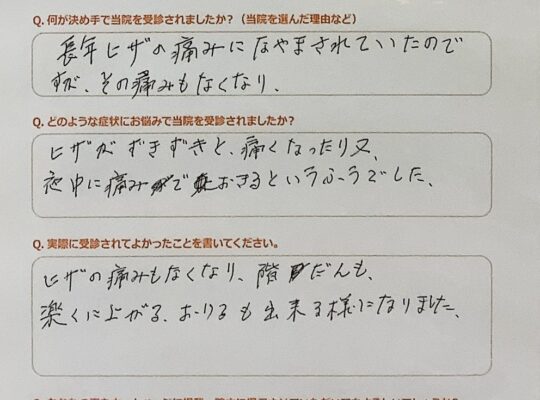 Q. 何が決め手で当院を受診されましたか？（当院を選んだ理由など）
長年ヒザの痛みになやまされていたので
すが、その痛みもなくなり、
Q. どのような症状にお悩みで当院を受診されましたか？
ヒザがずきずきと、痛くなったり又、
夜中に痛みでおきるというふうでした、
Q. 実際に受診されてよかったことを書いてください。
ヒザの痛みもなくなり、階だんも、
楽くに上がる、おりるも出来る様になりました、